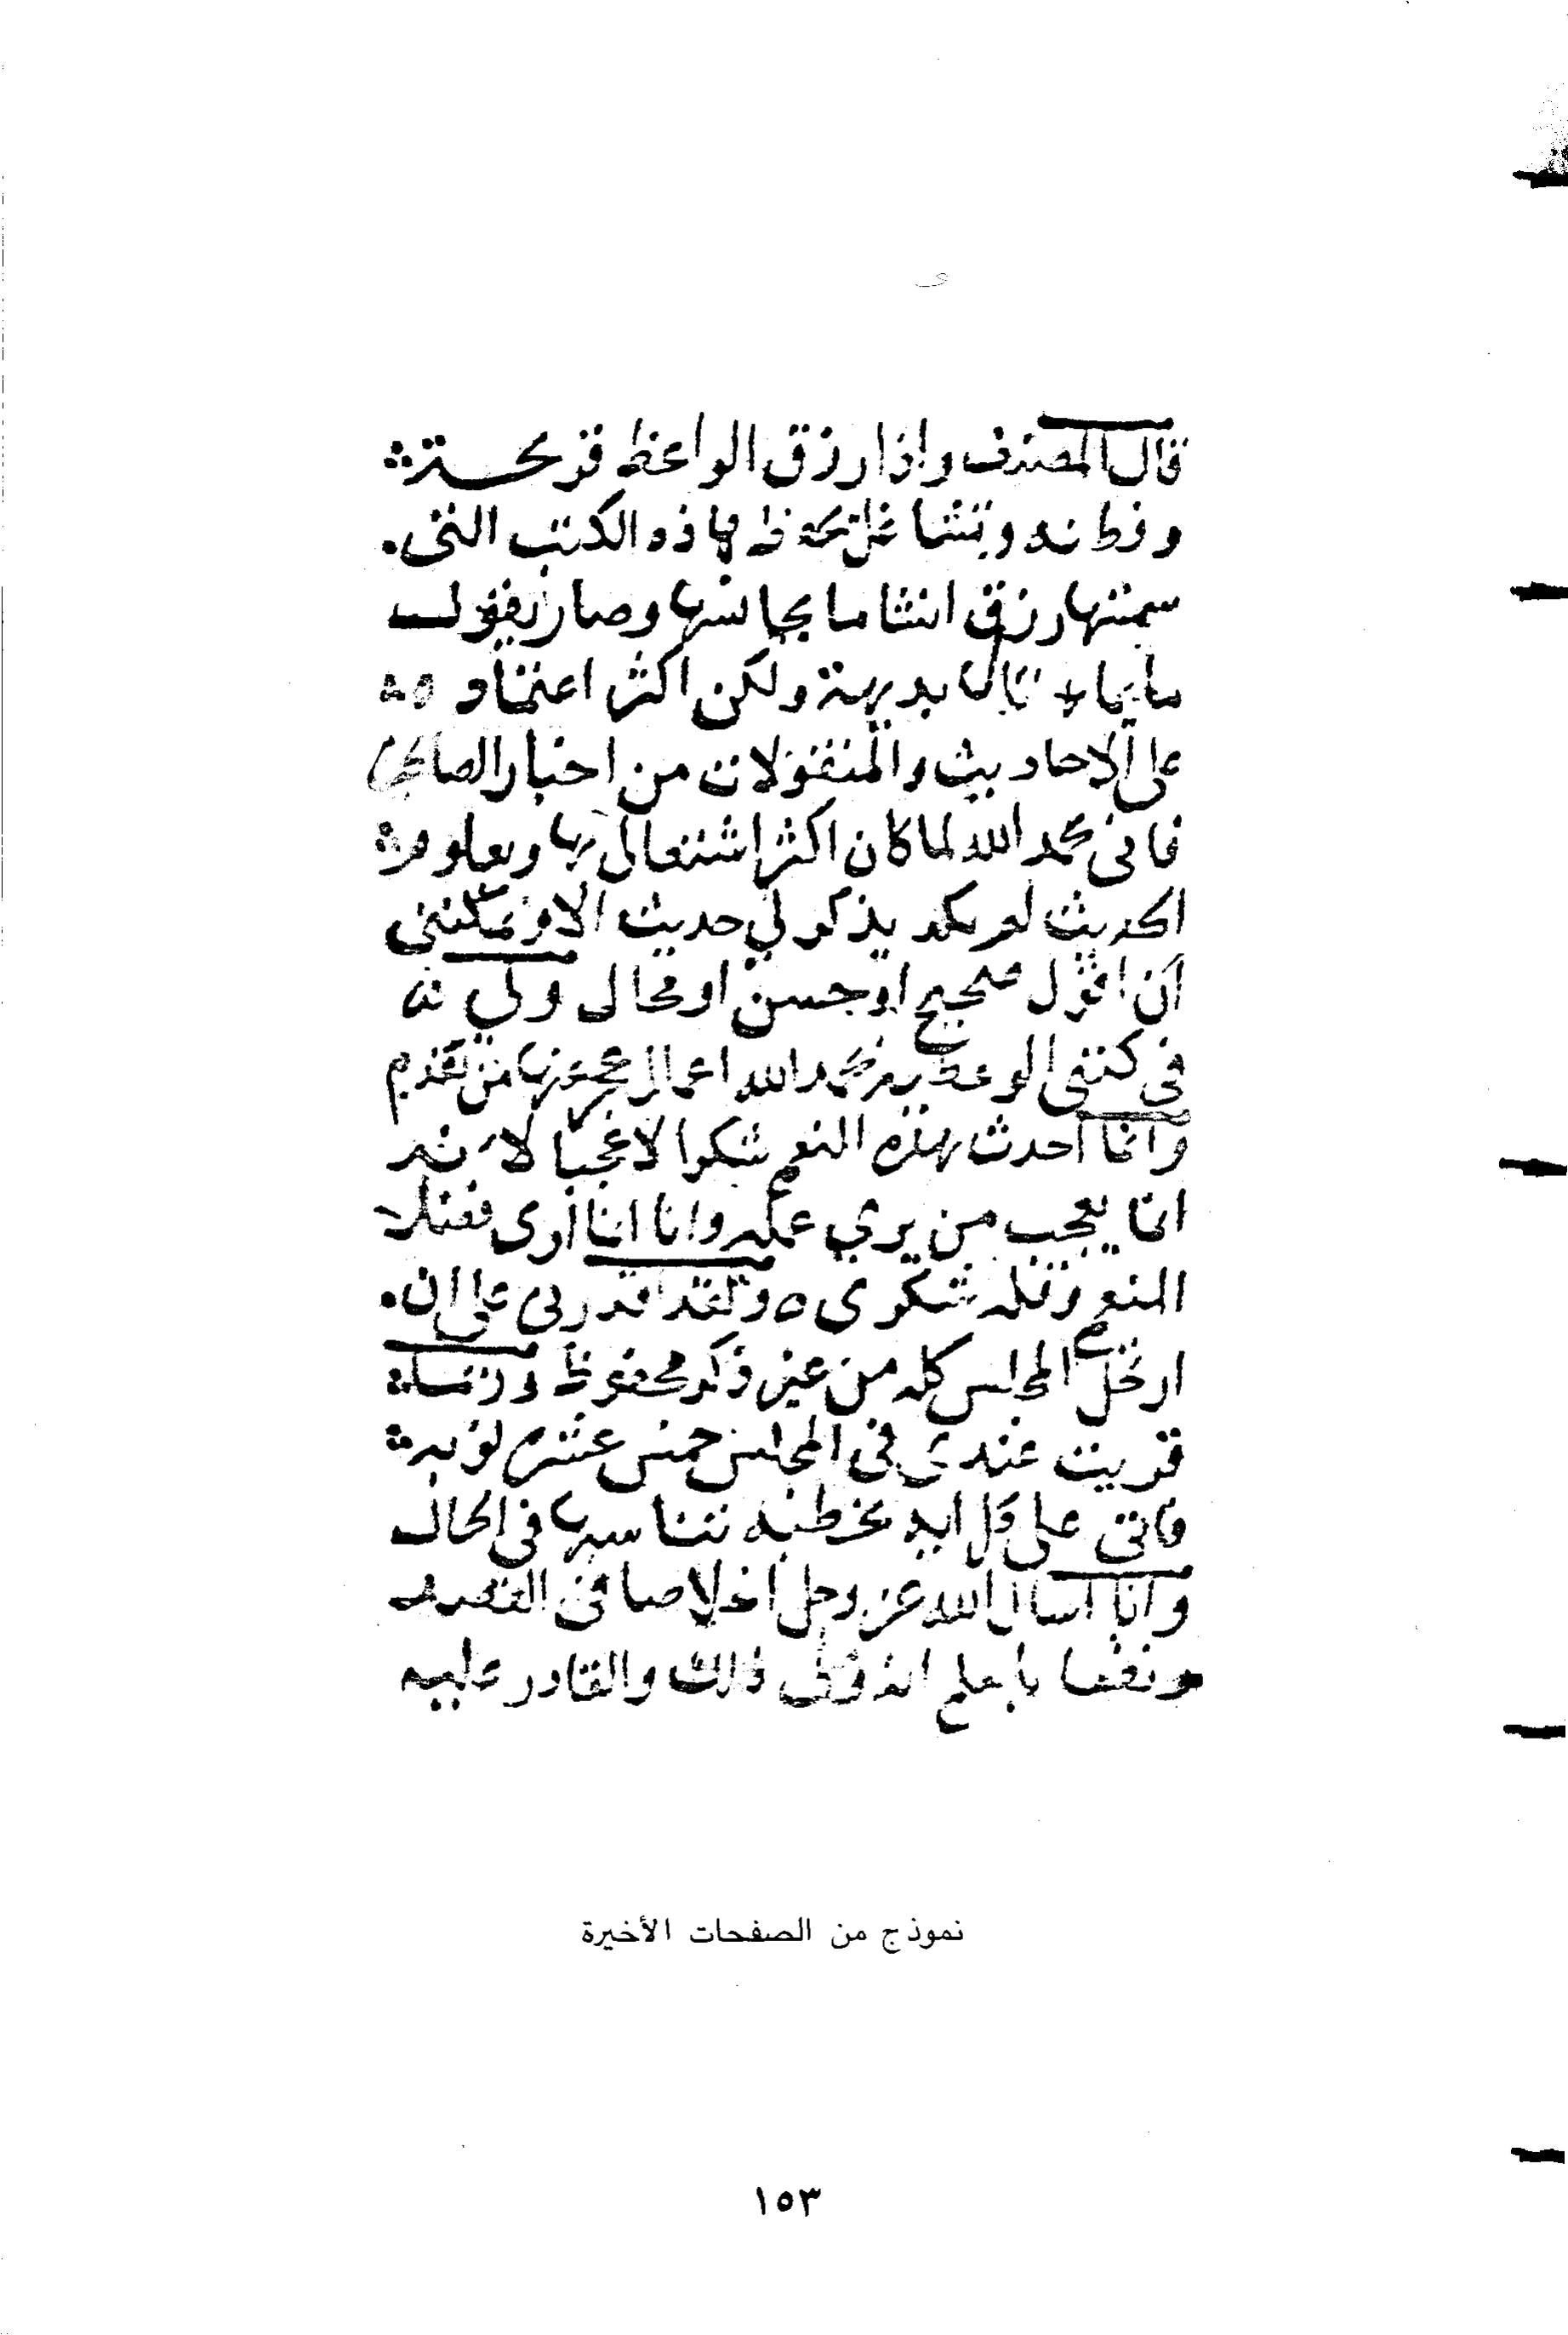 قال المصنف واذا رزق الواعظ قريحة
وفطانه وتشاغل بحفظ هاذه الكتب التى
سميتها رزق انشا ما يجانسها وصار يقول
بديهة ولكن اكثر اعتماده
على الاحاديث والمنقولات من اخبار الصالحين
فانى بحمد الله لما كان اكثر اشتغالى بها وبعلوم
الحديث لم يكد يذكر لي حديث الا ويمكننى
ان اقول صحيح او حسن او محال ولي
فى كتبى الوعظيه بحمد الله من تقدم
وانما احدث بهذه النعم شكرا لا عجبا لانه
انما يعجب من يري عمله وانا انما أرى فضل
المنعم وقله شكرى ولقد اقدرنى على ان
ارتجل المجلس كله من غير ذكر محفوظ وربما
قريت عندى فى المجلس خمس عشره
فاتى على كل ايه بخطبه تناسبها فى الحال
وانا اسال الله عز وجل اخلاصا فى القصد
ونفعا بالعلم انه ولى ذلك والقادر عليه
نموذج من الصفحات الأخيرة
١٥٣